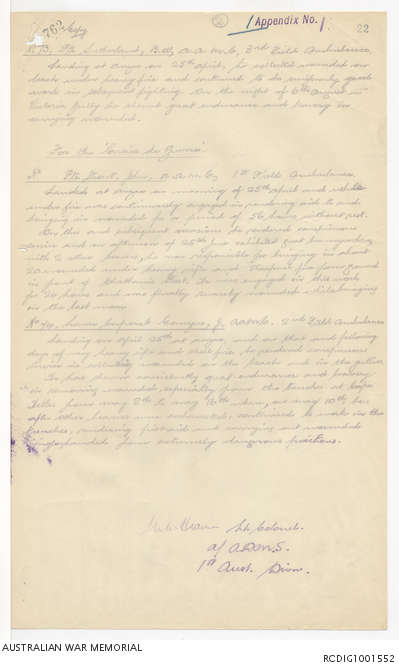 762 Copy Appendix No. 1 22
No 13, Pte Sutherland, B.H, A.A.M.C, 3rd Field Ambulance.
Landing at Anzac on 25th April, he collected wounded on
beach under heavy fire and continued to do uniformly good
work in subsequent fighting. On the night of 6th August in
Victoria Gully he showed great endurance and bravery in
carrying wounded.
For the "Croix de Guerre"
No Pte John, A.A.M.C, 1st Field Ambulance.
Landed at Anzac on morning of 25th April and while
under fire was continuously engaged in rendering aid to and
bringing in wounded for a period of 56 hours without rest.
On this and subsequent occasions he rendered conspicuous
service and on afternoon of 25th he exhibited great bravery when
with 2 other bearers, he was responsible for bringing in about
20 wounded under heavy rifle and fire from ground
in front of Post. He was engaged in this work
for 20 hours and was finally severely wounded while bringing
in the last man.
No 49, Lance Corporal Conyers, J. AAMC. 2nd Field Ambulance
Landing on April 25th at Anzac, and on that and following
days of very heavy rifle and shell fire he rendered conspicuous
service in collecting wounded on the beach and in the gullies.
He has shown consistently great endurance and bravery
in removing wounded, especially from the trenches at Cape
Helles from May 8th to May 12th when, on May 10th
after other bearers were exhausted, continued to work in the
trenches, rendering first aid and carrying out wounded
singlehanded from extremely dangerous positions.
Lt. Colonel.
a/ A.D.M.S.
1st Aust. Divn.
AUSTRALIAN WAR MEMORIAL RCDIG1001552